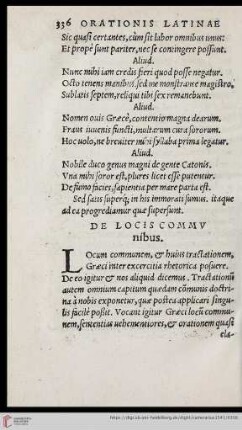 336 ORATIONIS LATINAE
Sic quasi certantes, cùm sit labor omnibus unus:
Et propè sunt pariter, nec se contingere possunt.
Aliud.
Nunc mihi iam credis fieri quod posse negatur.
Octo tenens manibus, sed me monstrante magistro,
Sublatis septem, reliqui tibi sex remanebunt.
Aliud.
Nomen ouis Græcè, contentio magna dearum.
Fraus iuuenis functi, multarum cura sororum.
Hoc uolo, ne breuiter mihi syllaba prima legatur.
Aliud.
Nobile duco genus magni de gente Catonis.
Vna mihi soror est, plures licet esse putentur.
De fumo facies, sapientia per mare parta est.
Sed satis superq; in his immorati sumus. itaque
ad ea progrediamur quæ supersunt.
DE LOCIS COMMV
nibus.
LOcum communem, & huius tractationem,
Græci inter excercitia rhetorica posuere.
De eo igitur & nos aliquid dicemus. Tractationũ
autem omnium capitum quædam cõmunis doctri-
na à nobis exponetur, quæ postea applicari singu-
lis facilè possit. Vocant igitur Græci locũ commu-
nem, sententias uehementiores, & orationem quasi
ela-